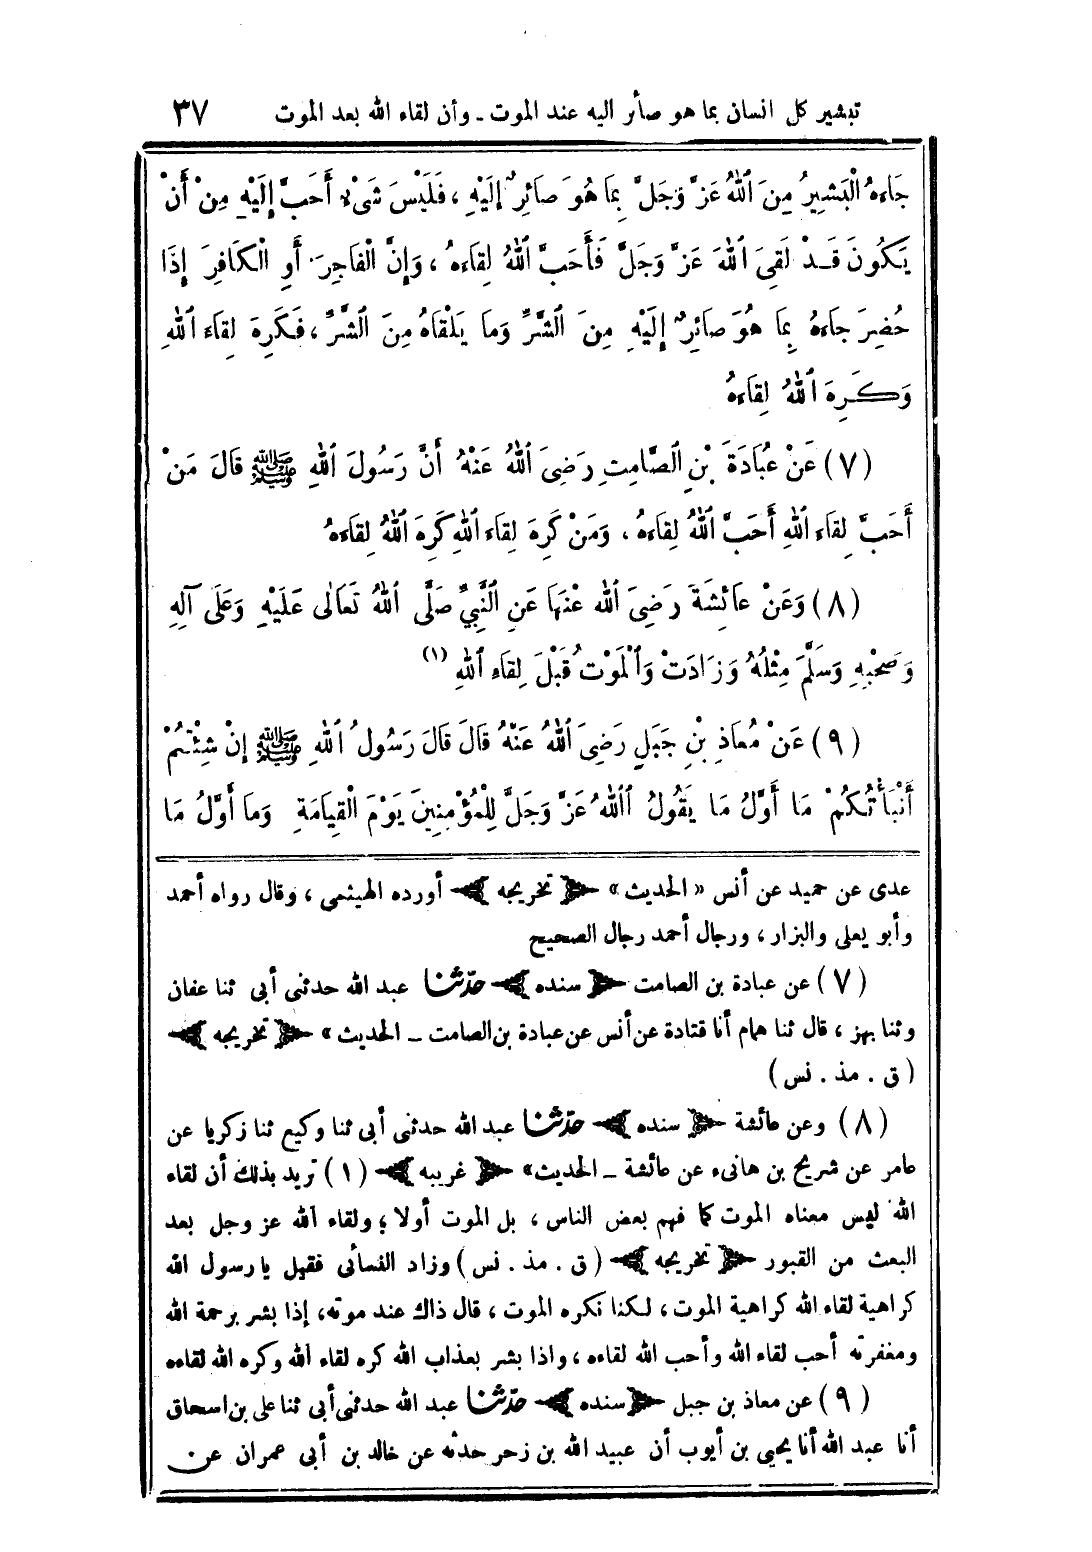 تبشير كل انسان بما هو صأر اليه عند الموت ـ وأن لقاء الله بعد الموت ٣٧
جَاءَهُ الْبَشِيرُ مِنَ اللهُ عَزَّ وَجَلَّ بِمَا هُوَ صَائِرٌ إِلَيْهِ ، فَلَيْسَ شَىْءٌ أَحَبَّ إِلَيْهِ مِنْ أَنْ
يَكُونَ قَدْ لَقِىَ اللهَ عَزَّ وَجَلَّ فَأَحَبَّ اللهُ لِقَاءَهُ ، وَإِنَّ الْفَاجِرَ أَوِ الْكَافِرَ إِذَا
حُضِرَ جَاءَهُ بِمَا هُوَ صَائِرٌ إِلَيْهِ مِنَ الشَّرِّ وَمَا يَلْقَاهُ مِنَ الشَّرِّ ، فَكَرِهَ لِقَاءَ اللهِ
وَكَرِهَ اللهُ لِقَاءَهُ
(٧) عَنْ عُبَادَةَ بْنِ الصَّامِتِ رَضِىَ اللهُ عَنْهُ أَنَّ رَسُولَ اللهِ ﷺ قَالَ مَنْ
أَحَبَّ لِقَاءَ اللهِ أَحَبَّ اللهُ لِقَاءَهُ ، وَمَنْ كَرِهَ لِقَاءَ اللهِ كَرِهَ اللهُ لِقَاءَهُ
(٨) وَعَنْ عَائِشَةَ رَضِىَ اللهُ عَنْهَا عَنِ النَّبِيِّ صَلَّى اللهُ تَعَالَى عَلَيْهِ وَعَلَى آلِهِ
وَصَحْبِهِ وَسَلَّمَ مِثْلُهُ وَزَادَتْ وَالْمَوْتُ قَبْلَ لِقَاءِ اللهِ (١)
(٩) عَنْ مُعَاذِ بْنِ جَبَلٍ رَضِىَ اللهُ عَنْهُ قَالَ قَالَ رَسُولُ اللهِ ﷺ إِنْ شِئْتُمْ
أَنْبَأْتُكُمْ مَا أَوَّلُ مَا يَقُولُ اللهُ عَزَّ وَجَلَّ لِلْمُؤْمِنِينَ يَوْمَ الْقِيَامَةِ وَمَا أَوَّلُ مَا
عدى عن حميد عن أنس «الحديث» ﴿ تخريجه ﴾ أورده الهيثمى ، وقال رواه أحمد
وأبو يعلى والبزار ، ورجال أحمد رجال الصحيح
(٧) عن عبادة بن الصامت ﴿ سنده ﴾ حدّثنا عبد الله حدثنى أبى ثنا عفان
وثنا بهز ، قال ثنا همام أنا قتادة عن أنس عن عبادة بن الصامت ـ الحديث» ﴿ تخريجه ﴾
(ق . مذ . نس)
(٨) وعن عائشة ﴿ سنده ﴾ حدّثنا عبد الله حدثنى أبى ثنا وكيع ثنا زكريا عن
عامر عن شريح بن هانىء عن عائشة ـ الحديث» ﴿ غريبه ﴾ (١) تريد بذلك أن لقاء
الله ليس معناه الموت كما فهم بعض الناس ، بل الموت أولا ؛ ولقاء الله عز وجل بعد
البعث من القبور ﴿ تخريجه ﴾ (ق . مذ . نس) وزاد النسائى فقيل يا رسول الله
كراهية لقاء الله كراهية الموت ، لكنا نكره الموت ، قال ذاك عند موته، إذا بشر برحمة الله
ومغفرته أحب لقاء الله وأحب الله لقاءه ، واذا بشر بعذاب الله كره لقاء الله وكره الله لقاءه
(٩) عن معاذ بن جبل ﴿ سنده ﴾ حدّثنا عبد الله حدثنى أبى ثنا على بن اسحاق
أنا عبد الله أنا يحيى بن أيوب أن عبيد الله بن زحر حدثه عن خالد بن أبى عمران عن